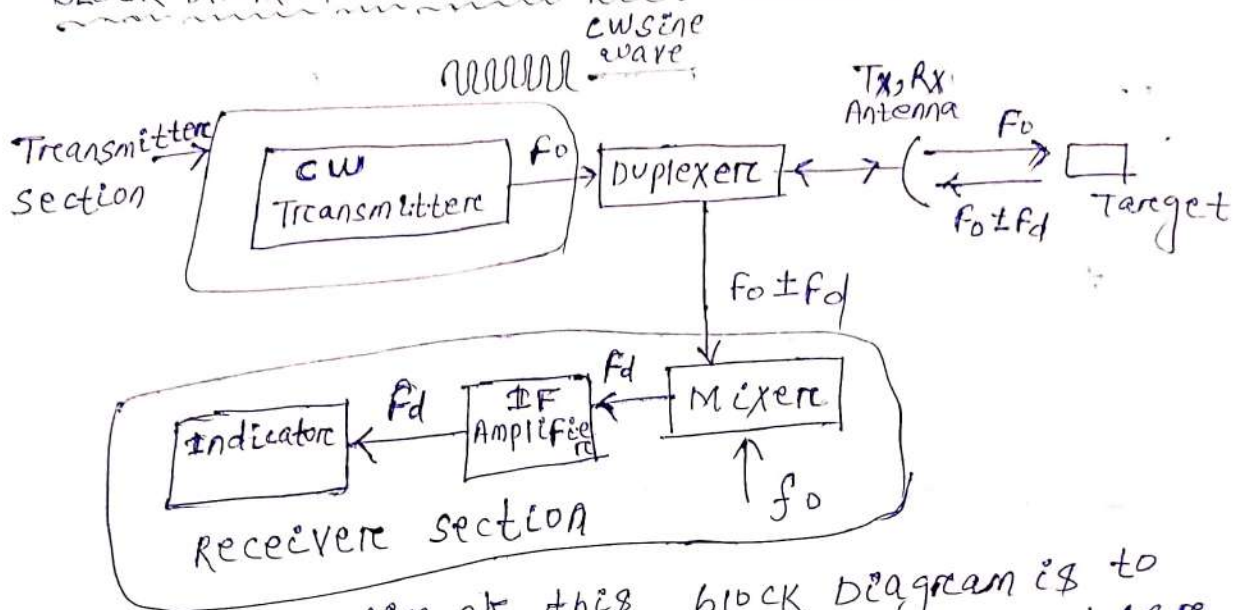 CW sine
wave
Tx, Rx
Antenna
Treansmittere
section
CW
Treansmittere
fo
Duplexere
Fo
Fo ± Fd
Tareget
Fo ± Fd
Mixere
fo
Fd
IF
Amplifie
re
Fd
Indicatore
Receivere section
this block Diagream is to